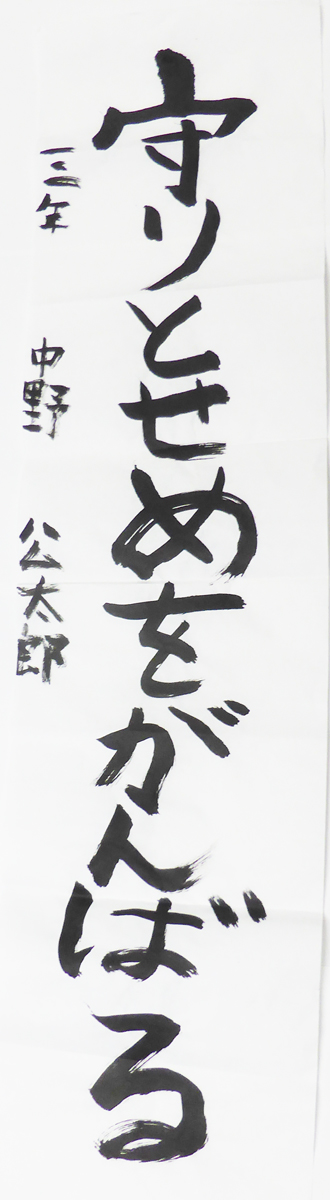 守りとせめをがんばる
三年 中野 公太郎